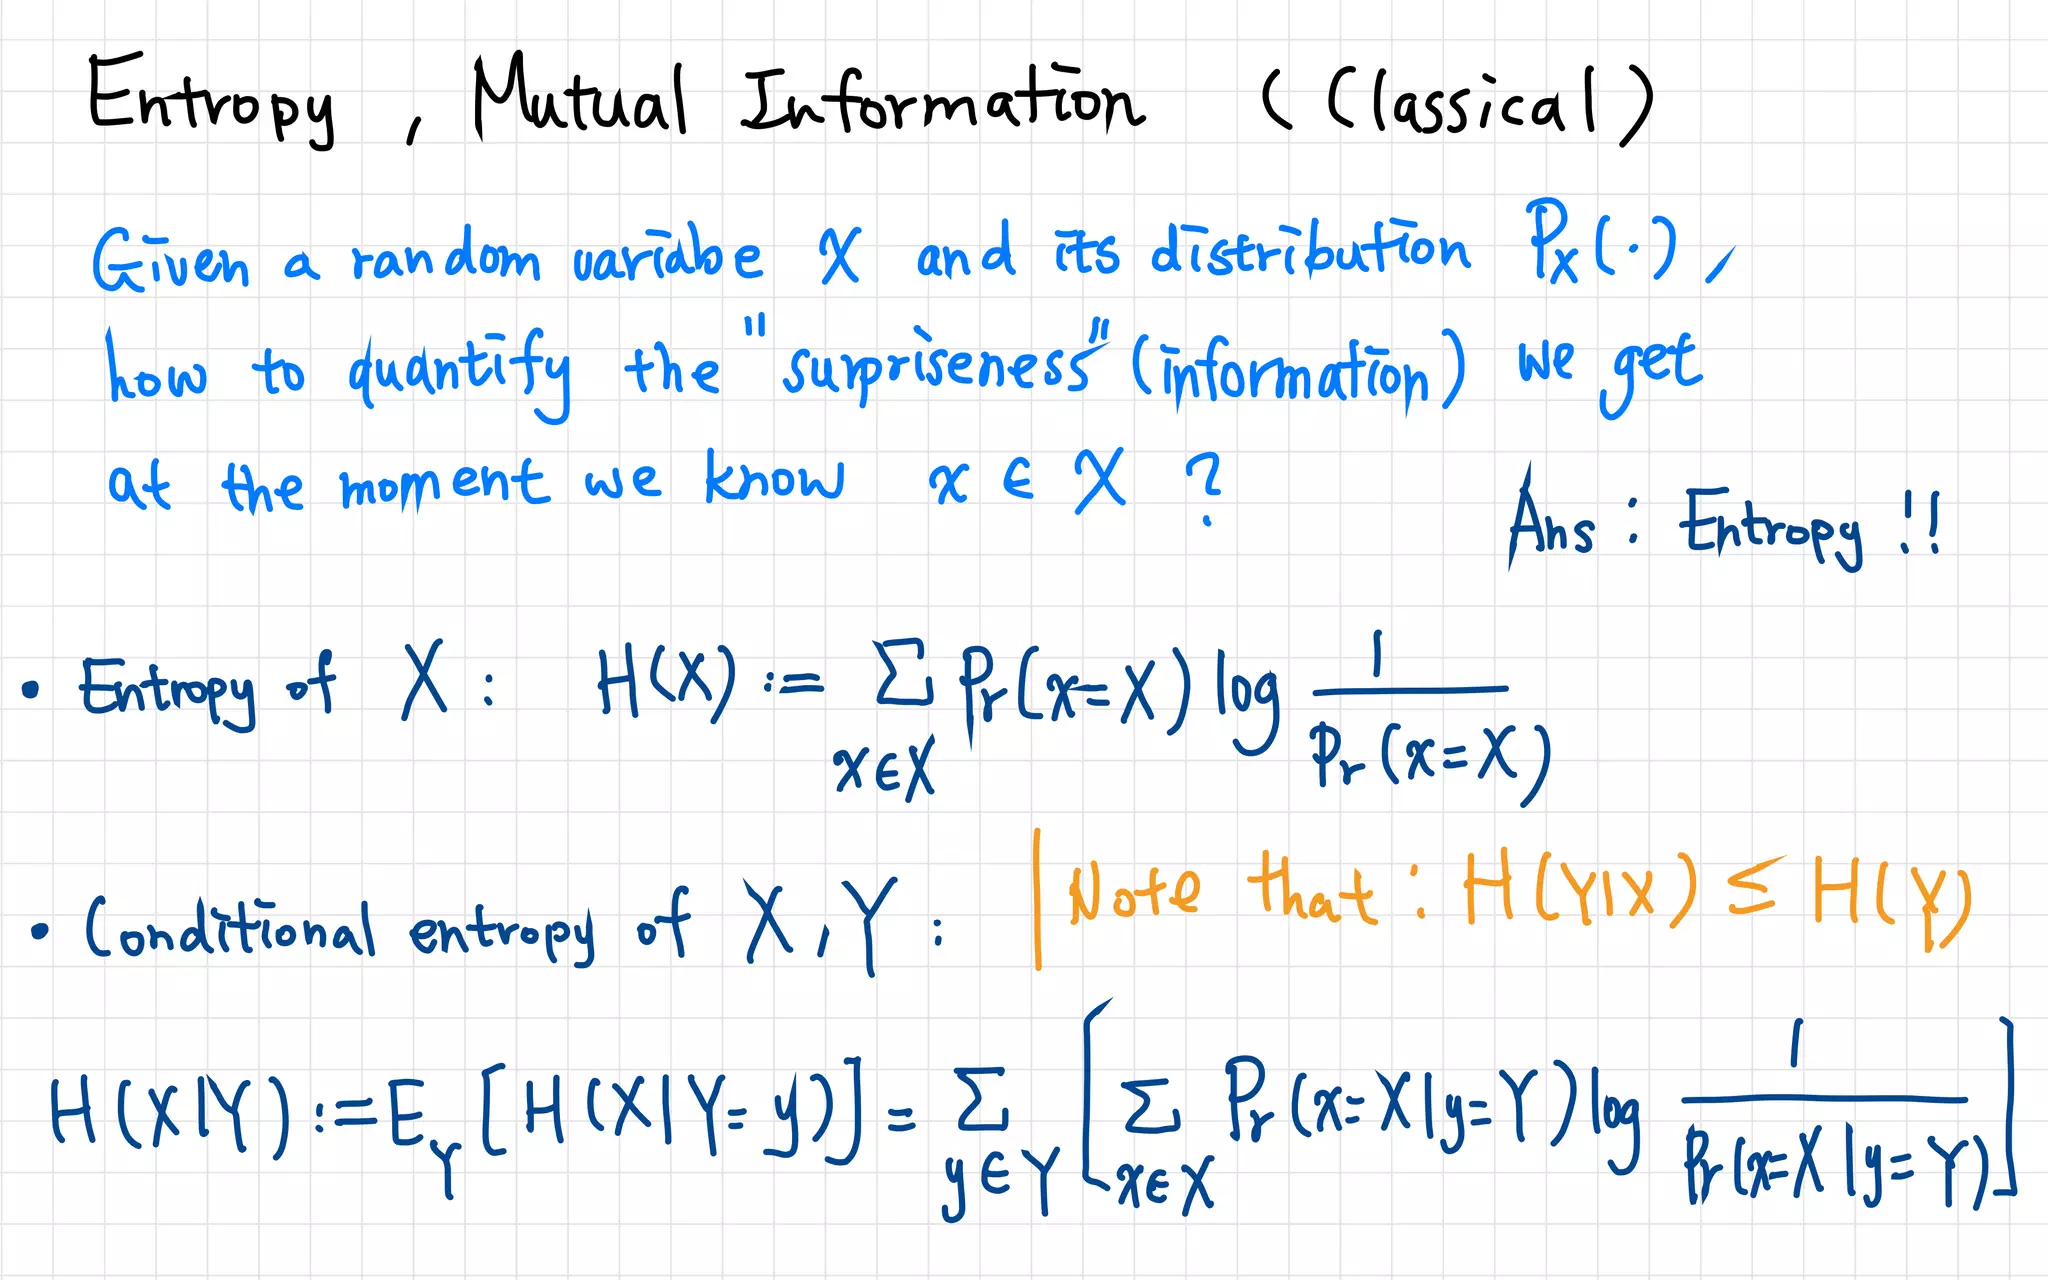 Entropy, Mutual Information (Classical)
Given a random variabe X and its distribution Pₓ(·),
how to quantify the "surpriseness" (information) we get
at the moment we know x ∈ X ?
Ans : Entropy !!
• Entropy of X : H(X) := ∑_{x∈X} Pr(x=X) log 1/Pr(x=X)
Note that : H(Y|X) ≤ H(Y)
• Conditional entropy of X, Y :
H(X|Y) := E_Y [H(X|Y=y)] = ∑_{y∈Y} [∑_{x∈X} Pr(x=X|y=Y) log 1/Pr(x=X|y=Y)]